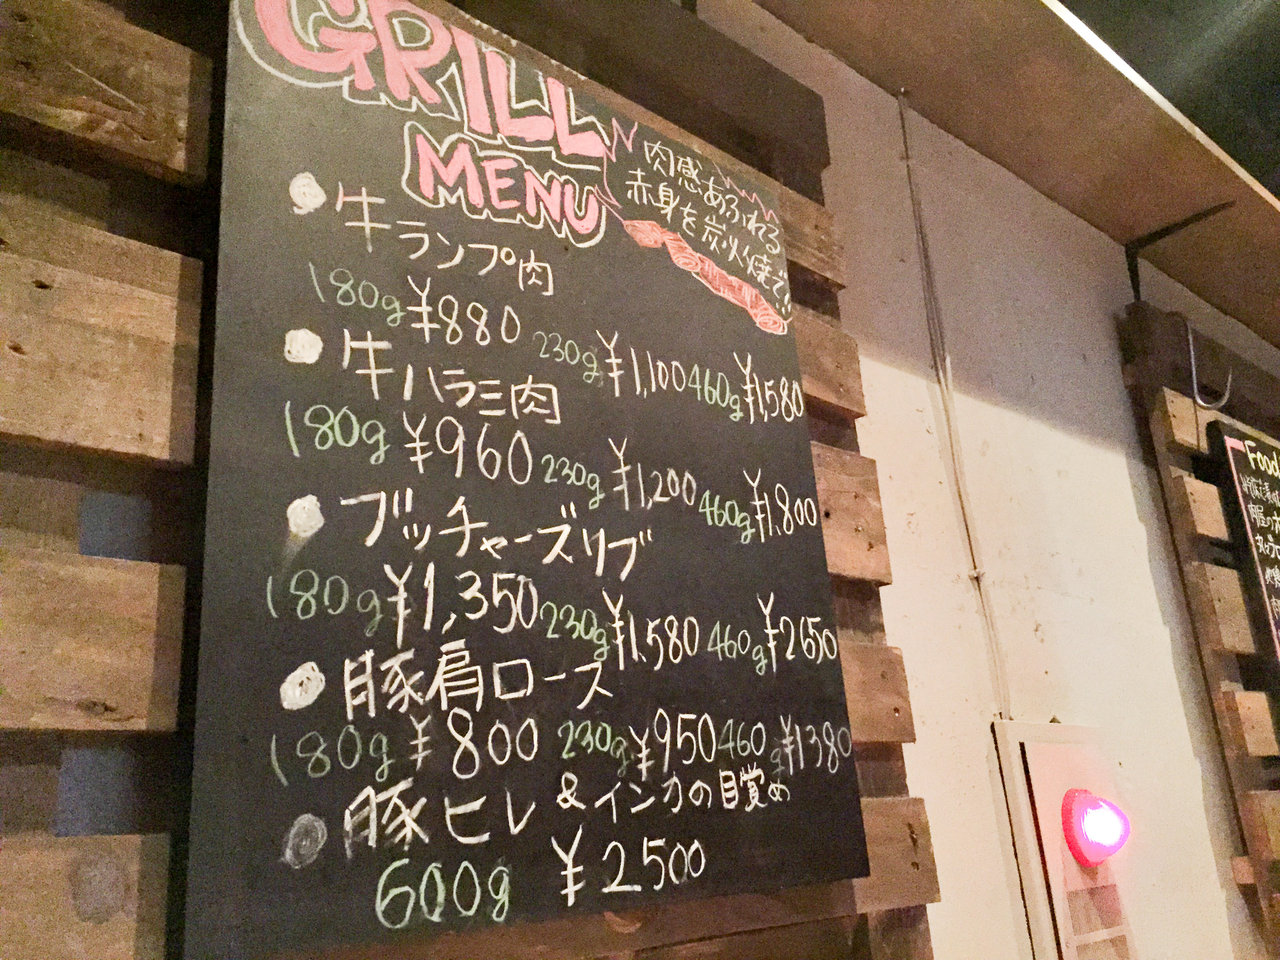 GRILL
MENU
肉感あふれる
赤身を炭火焼で!!
牛ランプ肉
180g ¥880 230g ¥1,100 460g ¥1,580
牛ハラミ肉
180g ¥960 230g ¥1,200 460g ¥1,800
ブッチャーズリブ
180g ¥1,350 230g ¥1,580 460g ¥2650
豚肩ロース
180g ¥800 230g ¥950 460g ¥1380
豚ヒレ & インカの目覚め
600g ¥2500
Food